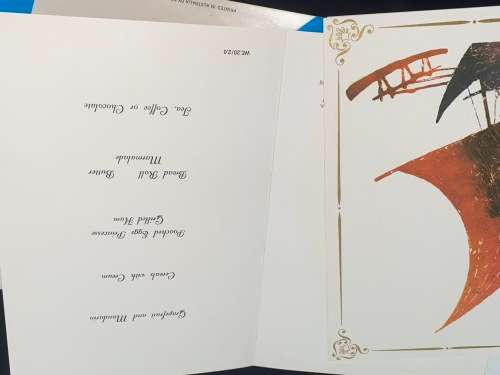 Grapefruit and Mandarin
Cereals with Cream
Poached Eggs Princesse
Grilled Ham
Bread Roll Butter
Marmalade
Tea, Coffee or Chocolate
WE.20/2.0
PRINTED IN AUSTRALIA BY